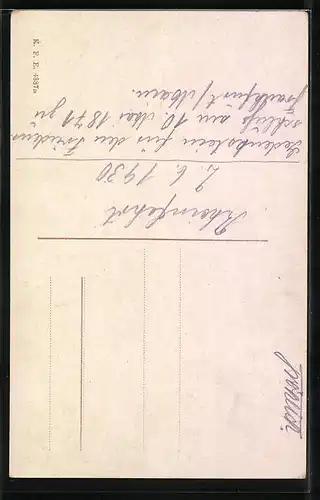 K. F. E. 4887a
Gedenkstein für den Friedens-
schluß am 10. Mai 1871 zu
Frankfurt/Main.
Rheinfahrt
2.6. 1930